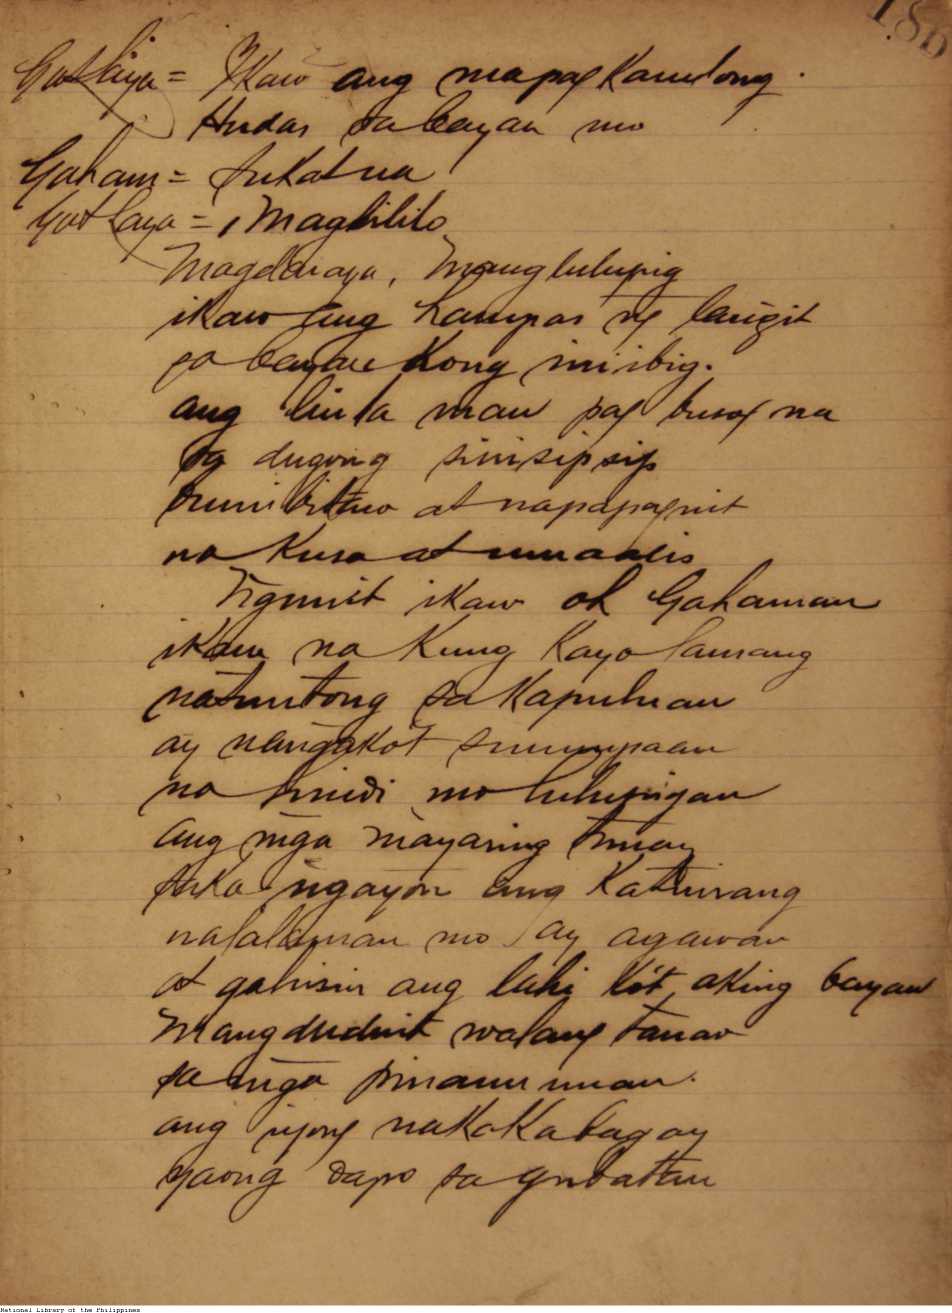 186
Gat laya = Ikaw ang mapagkanulong
Hudas sa bayan mo
Gaham = Sukat na
Gat laya = Maglililo
Magdaraya, Manglulupig
ikaw ang hampas ng langit
sa bayan kong iniibig.
ang linta man pag busog na
sa dugong sinisipsip
bumibitaw at napapagnit
na kusa at umaalis
Ngunit ikaw oh Gahaman
ikaw na kung kaya lamang
natuntong sa kapuluan
ay nangakot sumumpaan
na hindi mo lulupigan
ang mga mayaring tunay
saka ngayon ang katuirang
nalalaman mo ay agawan
at gahisin ang lahi ko't aking bayan
Mangduduit walang
sa mga
ang iyong nakakabagay
yaong dapo sa gubatan
National Library of the Philippines